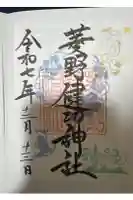 菱野健功神社
令和七年三月十三日